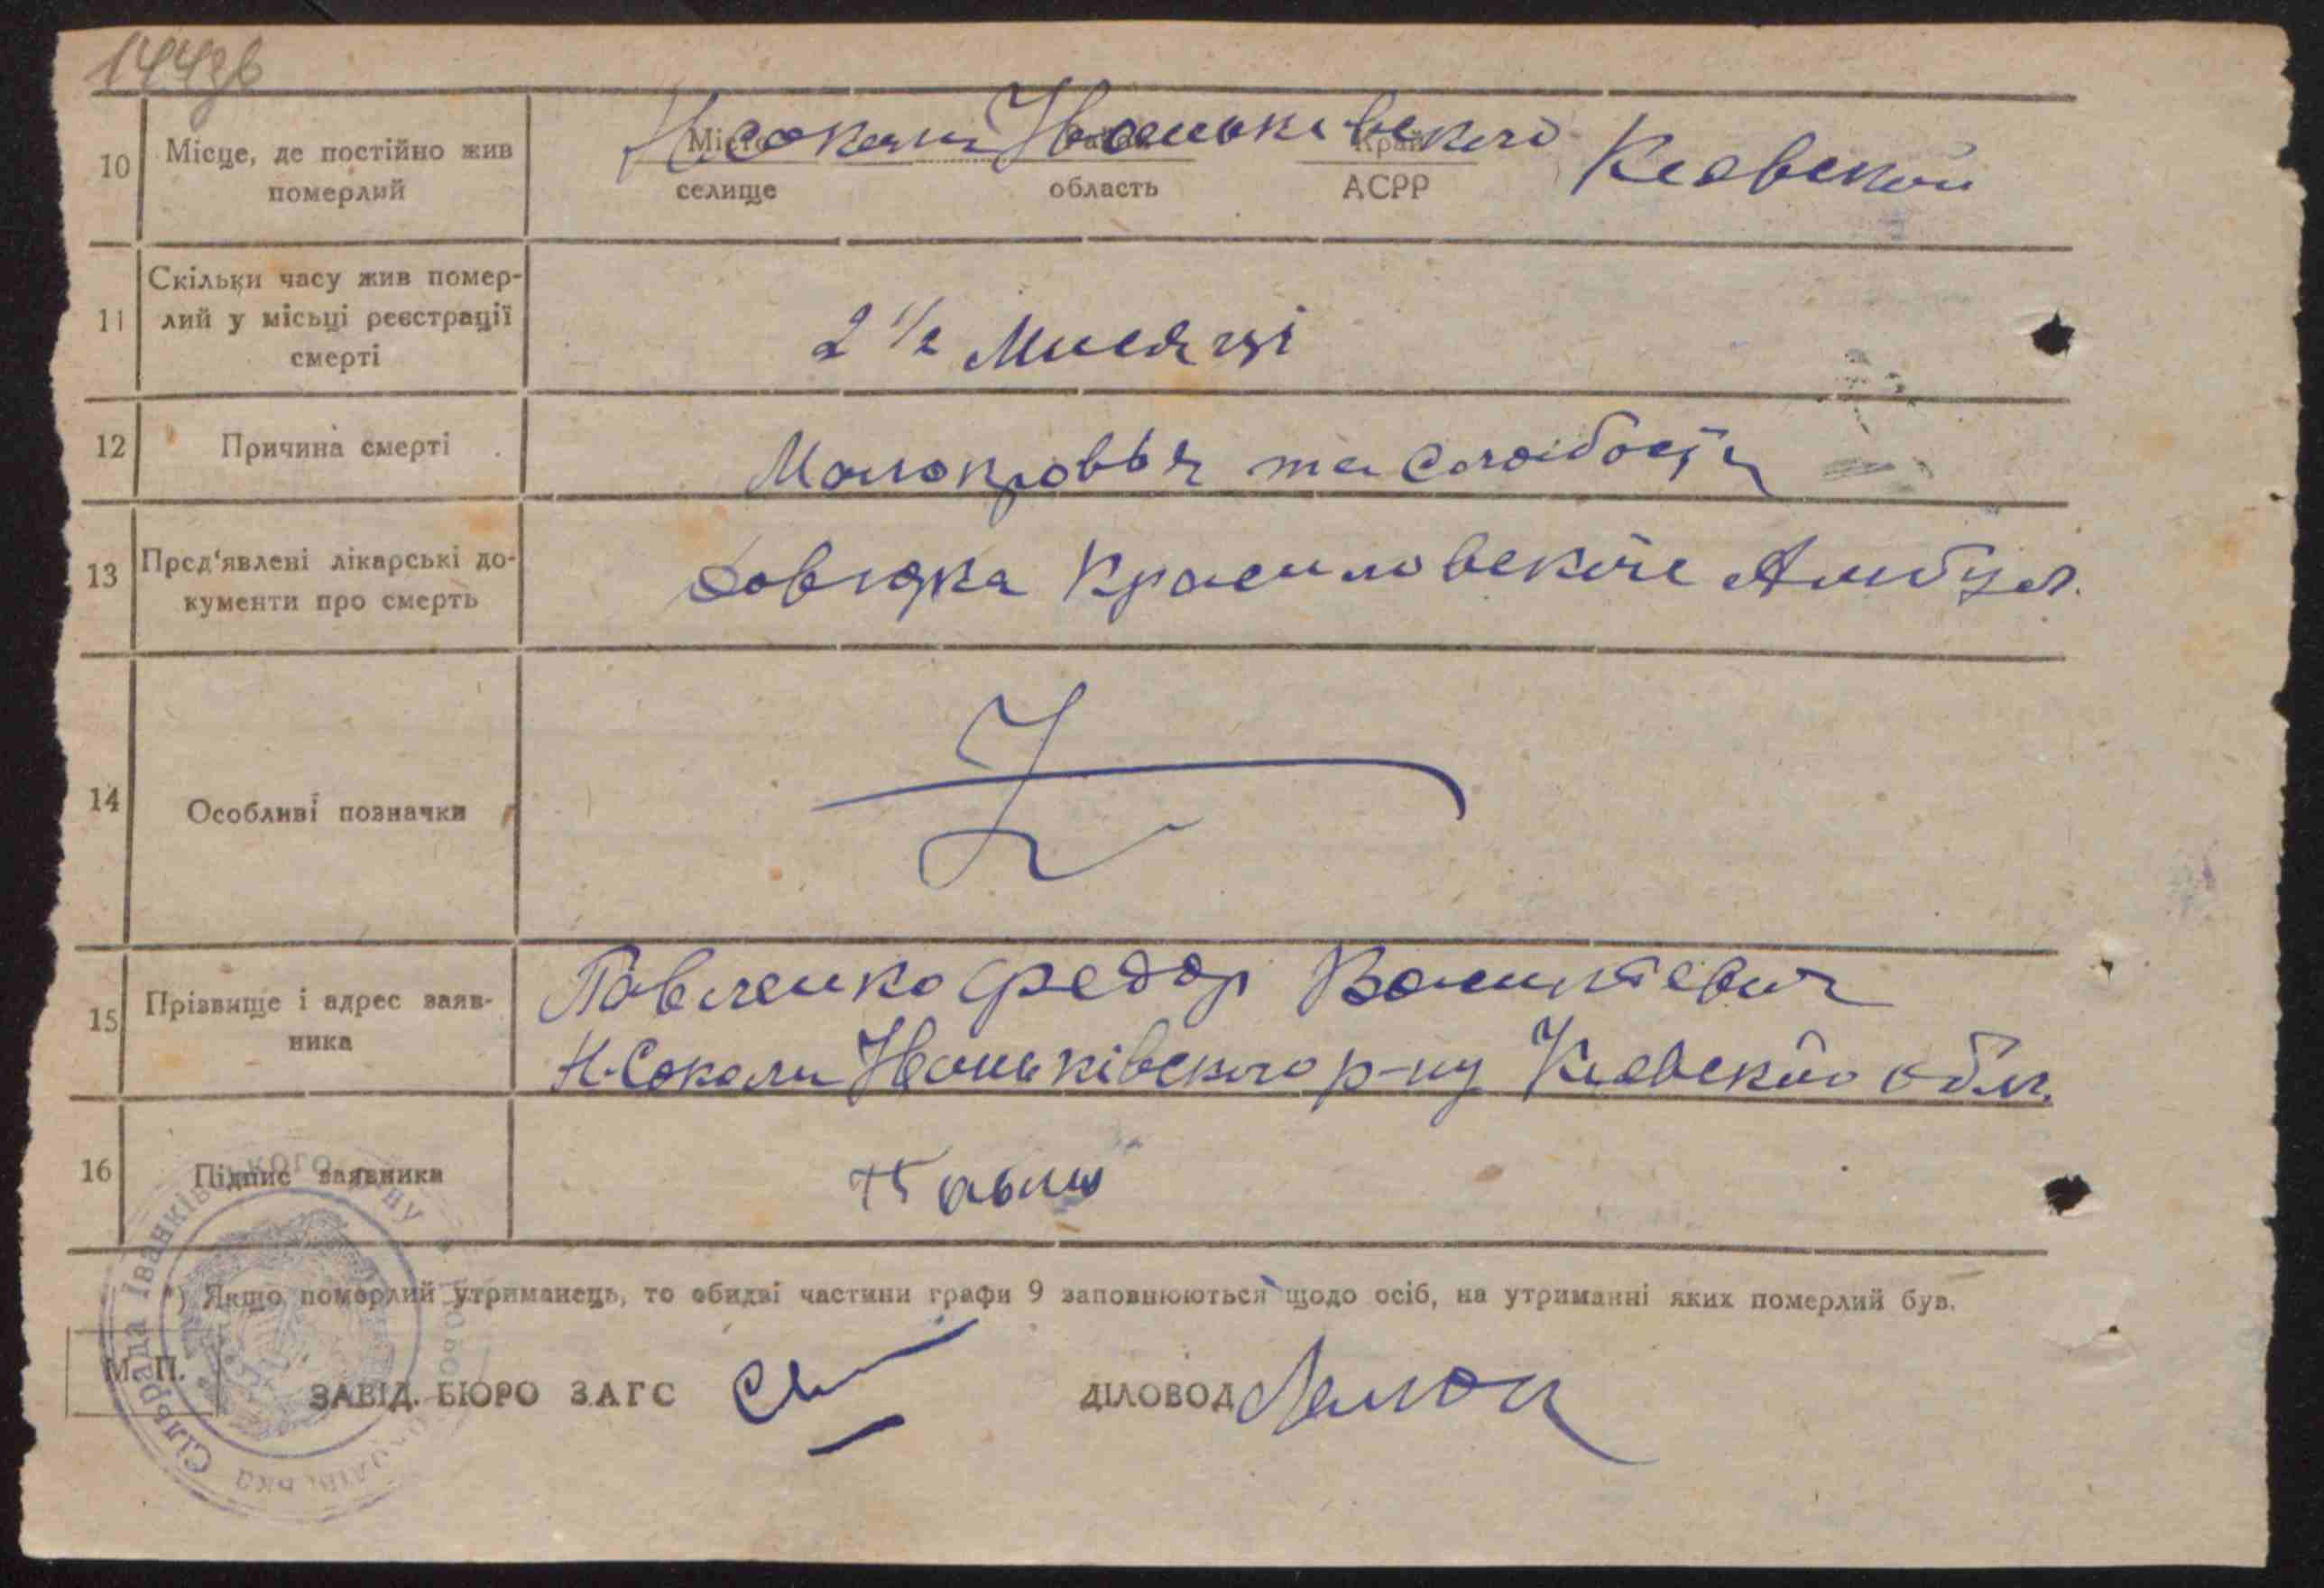 10 Місце, де постійно жив померлий
Н Сокали Іваньківського Київської
Місто Район Край
селище область АСРР
11 Скільки часу жив помер-
лий у місьці реєстрації
смерті
2 1/2 Мисяці
12 Причина смерті
Малокровья та Слабость
13 Пред'явлені лікарські до-
кументи про смерть
Довідка Красиловскої Амбул.
14 Особливі позначки
Z
15 Прізвище і адрес заяв-
ника
Павленко Федор
Н-Сокали Іваньківського р-ну Київської обл.
16 Підпис заявника
Павли
*) Якщо померлий утриманець, то обидві частини графи 9 заповнюються щодо осіб, на утриманні яких померлий був.
М. П.
ЗАВІД. БЮРО ЗАГС
ДІЛОВОД
Сільрада Іванківського р-ну